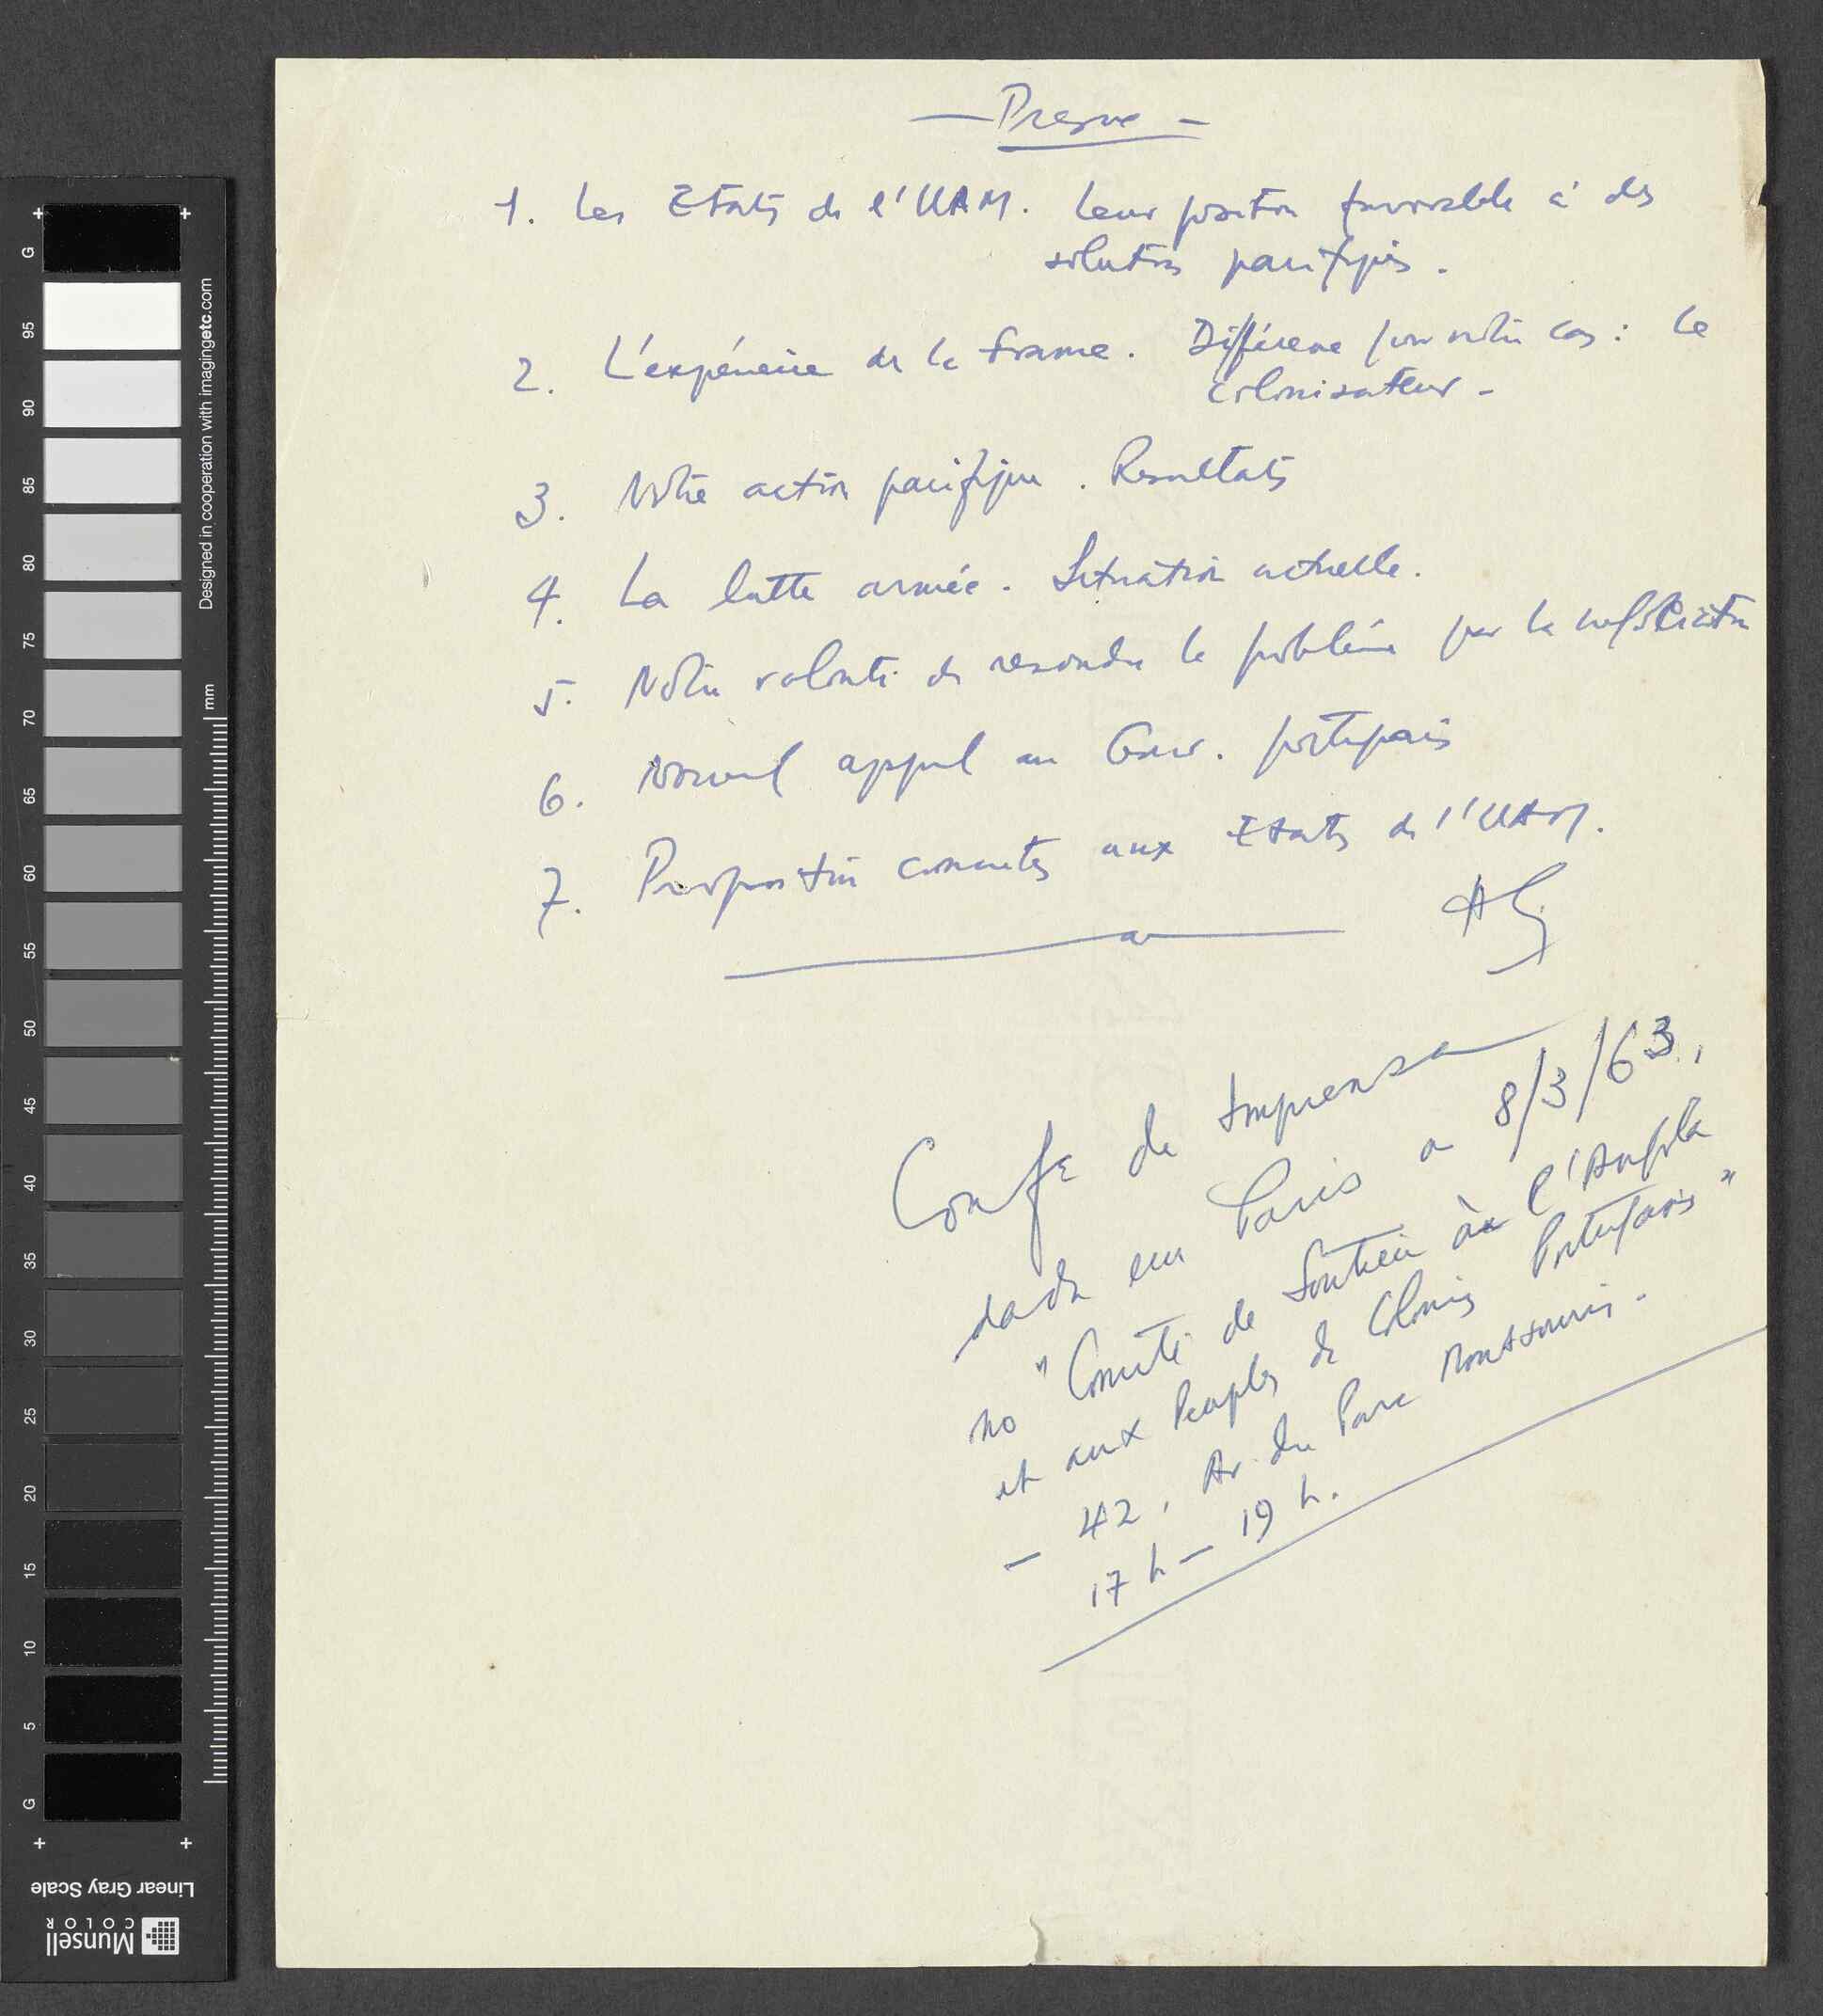 — Presse —
1. Les Etats de l'UAM. Leur position favorable à des
solutions pacifiques.
2. L'expérience de la France. Différence pour notre cas : le
colonisateur -
3. Notre action pacifique. Resultats
4. La lutte armée. Situation actuelle.
5. Notre volonté de resoudre le problème par la négociation
6. Nouvel appel au Gouv. portugais
7. Propositions concrètes aux Etats de l'UAM.
Confª de Imprensa
dada em Paris a 8/3/63,
no "Comité de Soutien à l'Angola
et aux Peuples des Colonies Portugaises"
— 42, Av. du Parc Montsouris.
17 h — 19 h.
G
95
90
85
80
75
70
65
60
55
50
45
40
35
30
25
20
15
10
5
G
mm
Designed in cooperation with imagingetc.com
Linear Gray Scale
Munsell
COLOR